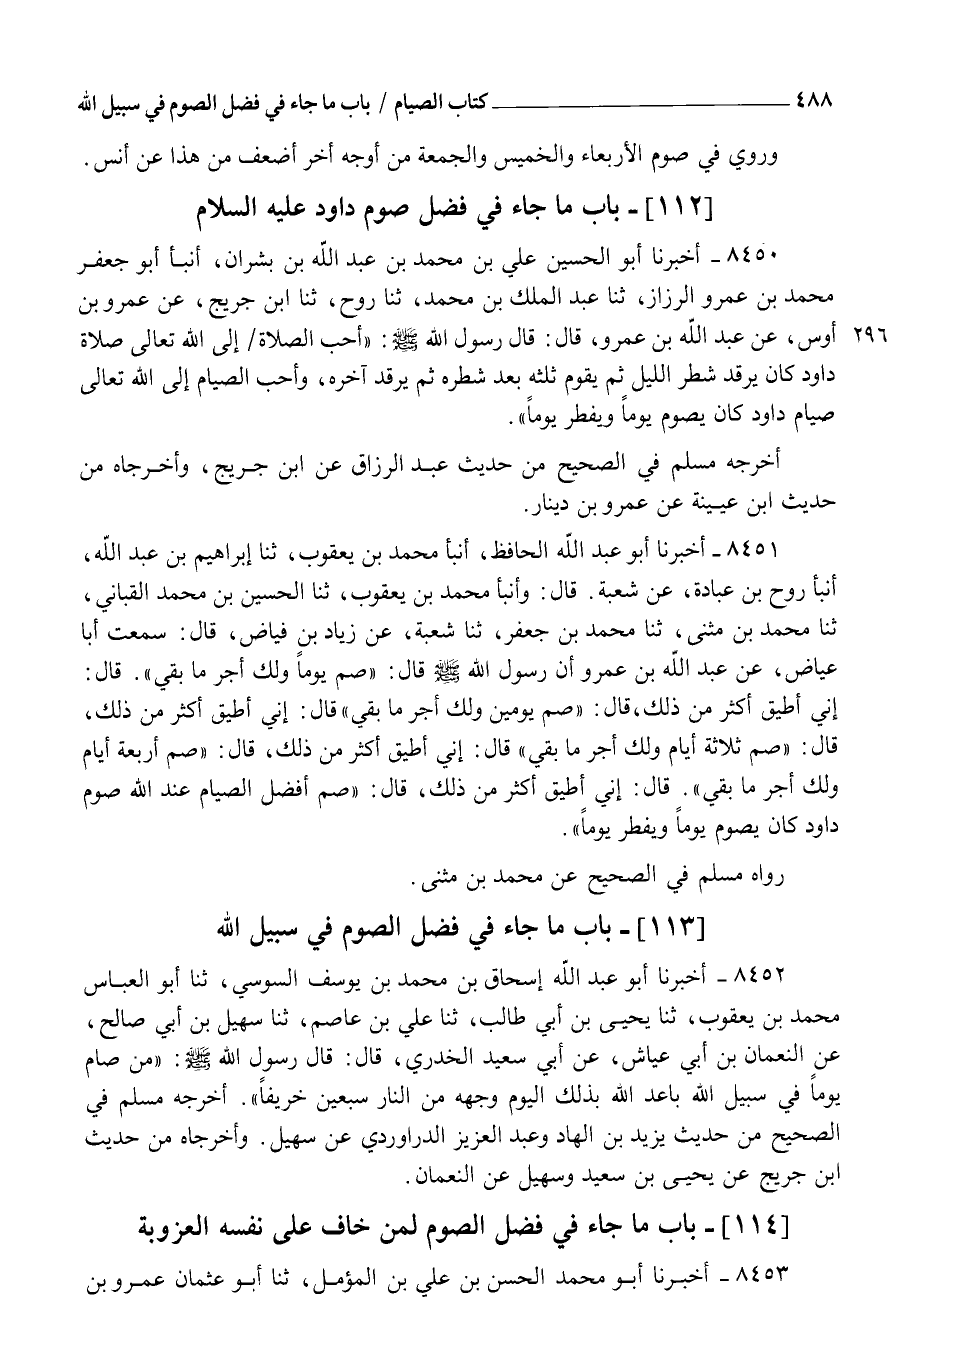 ٤٨٨ ـــــــــــــــــــ كتاب الصيام / باب ما جاء في فضل الصوم في سبيل الله
وروي في صوم الأربعاء والخميس والجمعة من أوجه أخر أضعف من هذا عن أنس.
[١١٢] ـ باب ما جاء في فضل صوم داود عليه السلام
٨٤٥٠ ـ أخبرنا أبو الحسين علي بن محمد بن عبد اللّه بن بشران، أنبأ أبو جعفر
محمد بن عمرو الرزاز، ثنا عبد الملك بن محمد، ثنا روح، ثنا ابن جريج، عن عمرو بن
٢٩٦ أوس، عن عبد اللّه بن عمرو، قال: قال رسول الله ﷺ: «أحب الصلاة/ إلى الله تعالى صلاة
داود كان يرقد شطر الليل ثم يقوم ثلثه بعد شطره ثم يرقد آخره، وأحب الصيام إلى الله تعالى
صيام داود كان يصوم يوماً ويفطر يوماً».
أخرجه مسلم في الصحيح من حديث عبد الرزاق عن ابن جريج، وأخرجاه من
حديث ابن عيينة عن عمرو بن دينار.
٨٤٥١ ـ أخبرنا أبو عبد اللّه الحافظ، أنبأ محمد بن يعقوب، ثنا إبراهيم بن عبد اللّه،
أنبأ روح بن عبادة، عن شعبة. قال: وأنبأ محمد بن يعقوب، ثنا الحسين بن محمد القباني،
ثنا محمد بن مثنى، ثنا محمد بن جعفر، ثنا شعبة، عن زياد بن فياض، قال: سمعت أبا
عياض، عن عبد اللّه بن عمرو أن رسول الله ﷺ قال: «صم يوماً ولك أجر ما بقي». قال:
إني أطيق أكثر من ذلك،قال: «صم يومين ولك أجر ما بقي»قال: إني أطيق أكثر من ذلك،
قال: «صم ثلاثة أيام ولك أجر ما بقي» قال: إني أطيق أكثر من ذلك، قال: «صم أربعة أيام
ولك أجر ما بقي». قال: إني أطيق أكثر من ذلك، قال: «صم أفضل الصيام عند الله صوم
داود كان يصوم يوماً ويفطر يوماً».
رواه مسلم في الصحيح عن محمد بن مثنى.
[١١٣] ـ باب ما جاء في فضل الصوم في سبيل الله
٨٤٥٢ ـ أخبرنا أبو عبد اللّه إسحاق بن محمد بن يوسف السوسي، ثنا أبو العباس
محمد بن يعقوب، ثنا يحيى بن أبي طالب، ثنا علي بن عاصم، ثنا سهيل بن أبي صالح،
عن النعمان بن أبي عياش، عن أبي سعيد الخدري، قال: قال رسول الله ﷺ: «من صام
يوماً في سبيل الله باعد الله بذلك اليوم وجهه من النار سبعين خريفاً». أخرجه مسلم في
الصحيح من حديث يزيد بن الهاد وعبد العزيز الدراوردي عن سهيل. وأخرجاه من حديث
ابن جريج عن يحيى بن سعيد وسهيل عن النعمان.
[١١٤] ـ باب ما جاء في فضل الصوم لمن خاف على نفسه العزوبة
٨٤٥٣ ـ أخبرنا أبو محمد الحسن بن علي بن المؤمل، ثنا أبو عثمان عمرو بن